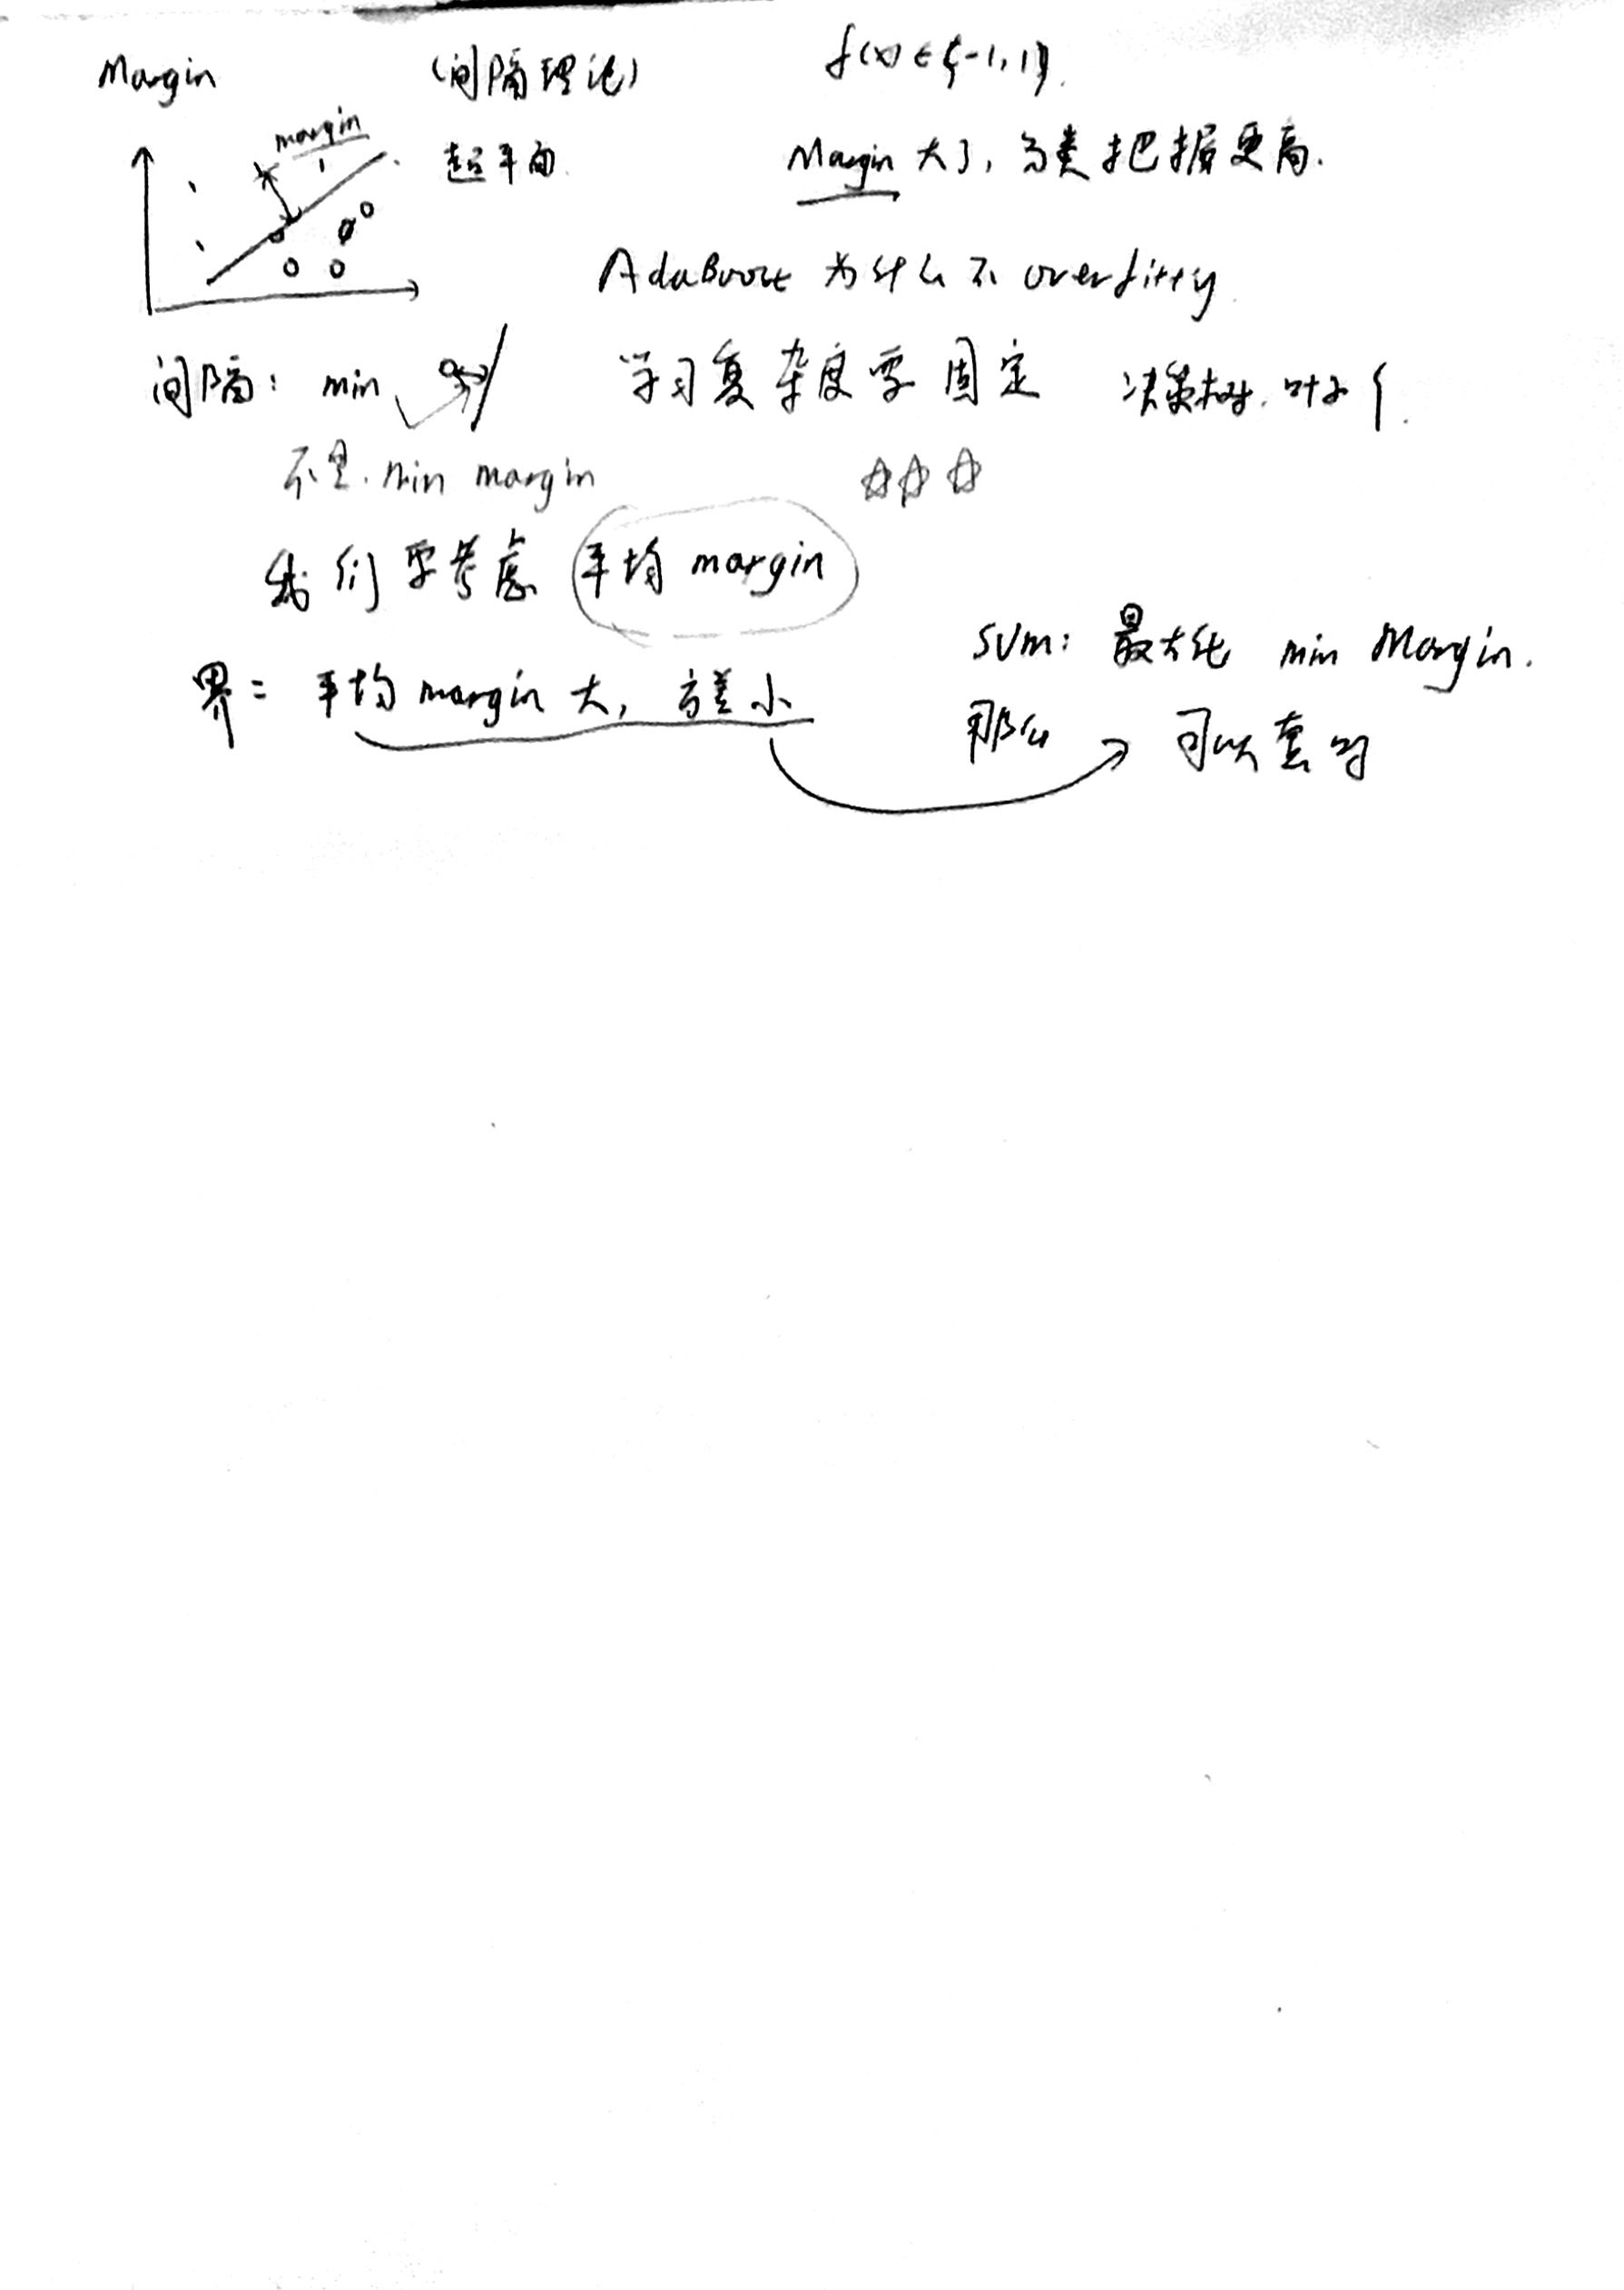 Margin (间隔理论) f(x)∈{-1,1}.
margin
超平面. Margin 大了, 分类把握更高.
AdaBoost 为什么不 overfitting
间隔: min 学习复杂度要固定 决策树. 叶子个.
不是. min margin ☆☆☆
我们要考虑 平均 margin
SVM: 最大化 min Margin.
界= 平均 margin 大, 方差小
那么 可以套的